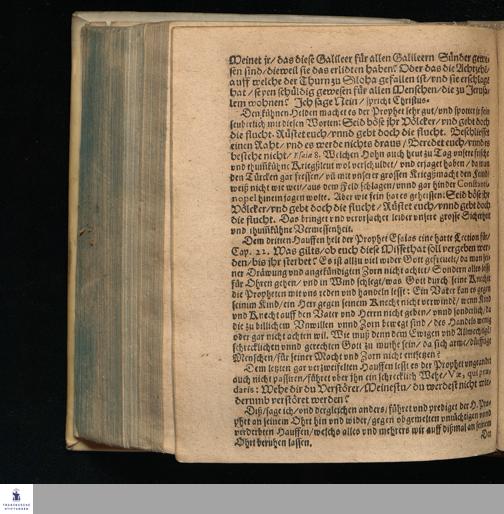 Meinet jr/ das diese Galileer für allen Galileern Sünder gewe-
sen sind/ dieweil sie das erlidten haben? Oder das die Achtzehẽ/
auff welche der Thurn zu Siloha gefallen ist/ vnd sie erschlagẽ
hat/ seyen schüldig gewesen für allen Menschen/ die zu Jerusa-
lem wohnen? Ich sage Nein/ spricht Christus.
Den kühnen Helden machet es der Prophet sehr gut/ vnd spottet jr fein
seuberlich mit diesen Worten: Seid böse jhr Völcker/ vnd gebt doch
die flucht. Rüstet euch/ vnnd gebt doch die flucht. Beschliesset
einen Raht/ vnd es werde nichts draus/ Beredet euch/ vnnd es
bestehe nicht/ Esaiæ 8. Welchen Hohn auch heut zu Tag vnsere frische
vnd thumkühne Kriegßleut wol verschuldet/ vnd erjaget haben/ da man
den Türcken gar fressen/ vñ mit vnserer grossen Kriegßmacht den Feind/
weiß nicht wie weit/ aus dem Feld schlagen/ vnnd gar hinder Constanti-
nopel hinein jagen wolte. Aber wie fein hat es geheissen: Seid böse jhr
Völcker/ vnd gebt doch die flucht/ Rüstet euch/ vnnd gebt doch
die flucht. Das bringet vnd verursachet leider vnsere grosse Sicherheit
vnd thumkühne Vermessenheit.
Dem dritten Hauffen helt der Prophet Esaias eine harte Lection für/
Cap. 22. Was gilts/ ob euch diese Missethat soll vergeben wer-
den/ bis jhr sterbet? Es ist allzu viel wider Gott gefrevelt/ da man sei-
ner Dräwung vnd angekündigten Zorn nicht achtet/ Sondern alles lesst
für Ohren gehen/ vnd in Wind schlegt/ was Gott durch seine Knecht
die Propheten mit vns reden vnd handeln lesst: Ein Vater kan es gegen
seinem Kind/ ein Herr gegen seinem Knecht nicht verwinde/ wenn Kind
vnd Knecht auff den Vater vnd Herrn nicht geben/ vnnd sonderlich/ da
die zu billichem Vnwillen vnnd Zorn bewegt sind/ des Handels wenig
oder gar nicht achten wil. Wie muß denn dem Ewigen vnd Allmechtigẽ
schrecklichen vnnd gerechten Gott zu muthe sein/ da sich arme/ dürfftige
Menschen/ für seiner Macht vnd Zorn nicht entsetzen?
Dem letzten gar verzweifelten Hauffen lesst es der Prophet vngeandet
auch nicht passiren/ führet vber jhn ein schrecklich Wehe/ Væ, qui præ-
daris: Wehe dir du Verstörer/ Meinestu/ du werdest nicht wi-
derumb verstöret werden?
Diß/ sage ich/ vnd dergleichen anders/ führet vnd prediget der H. Pro-
phet an seinem Ohrt hin vnd wider/ gegen obgemelten vnnächtigen vnnd
verderbten Hauffen/ welchs alles vnd mehrers wir auff dißmal an seinem
Ohrt beruhen lassen.